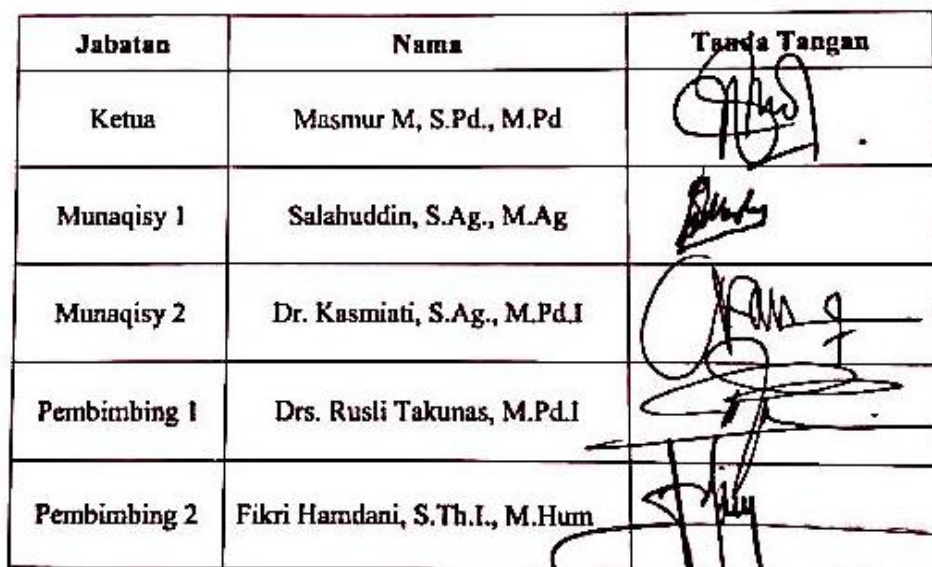 Jabatan Nama Tanda Tangan
Ketua Masmur M, S.Pd., M.Pd
Munaqisy 1 Salahuddin, S.Ag., M.Ag
Munaqisy 2 Dr. Kasmiati, S.Ag., M.Pd.I
Pembimbing 1 Drs. Rusli Takunas, M.Pd.I
Pembimbing 2 Fikri Hamdani, S.Th.I., M.Hum